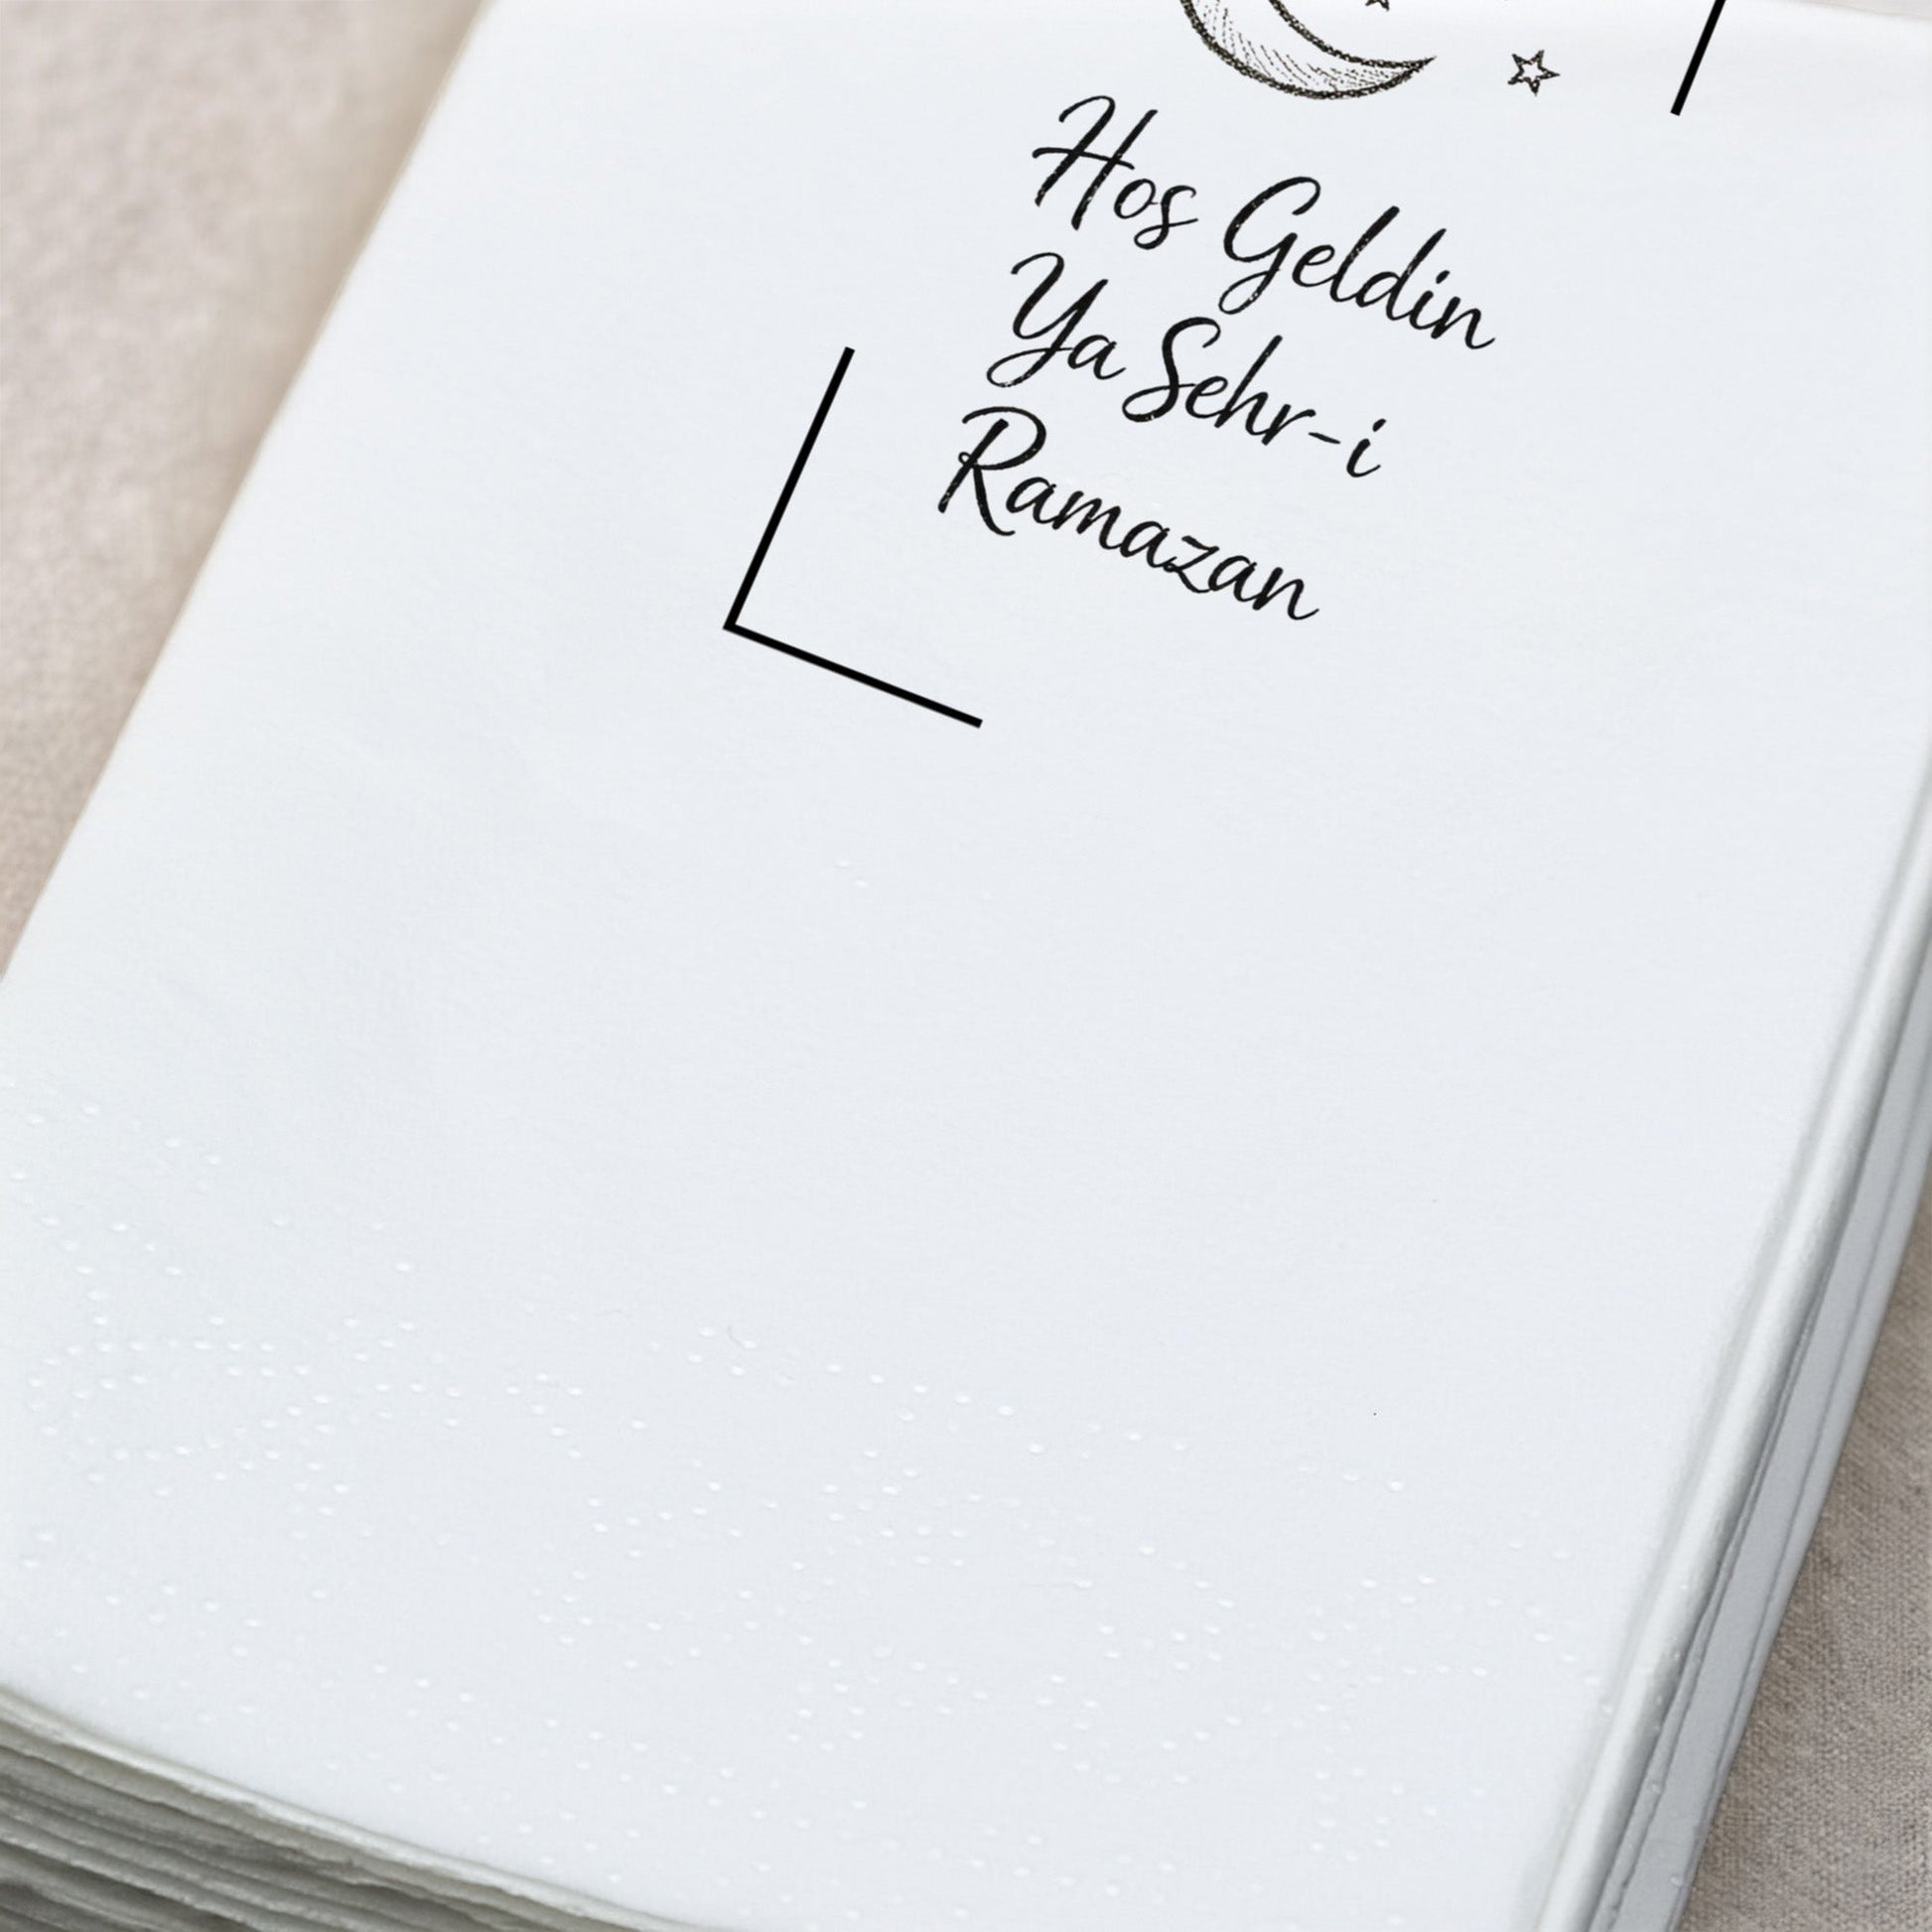 Hos Geldin
Ya Sehr-i
Ramazan